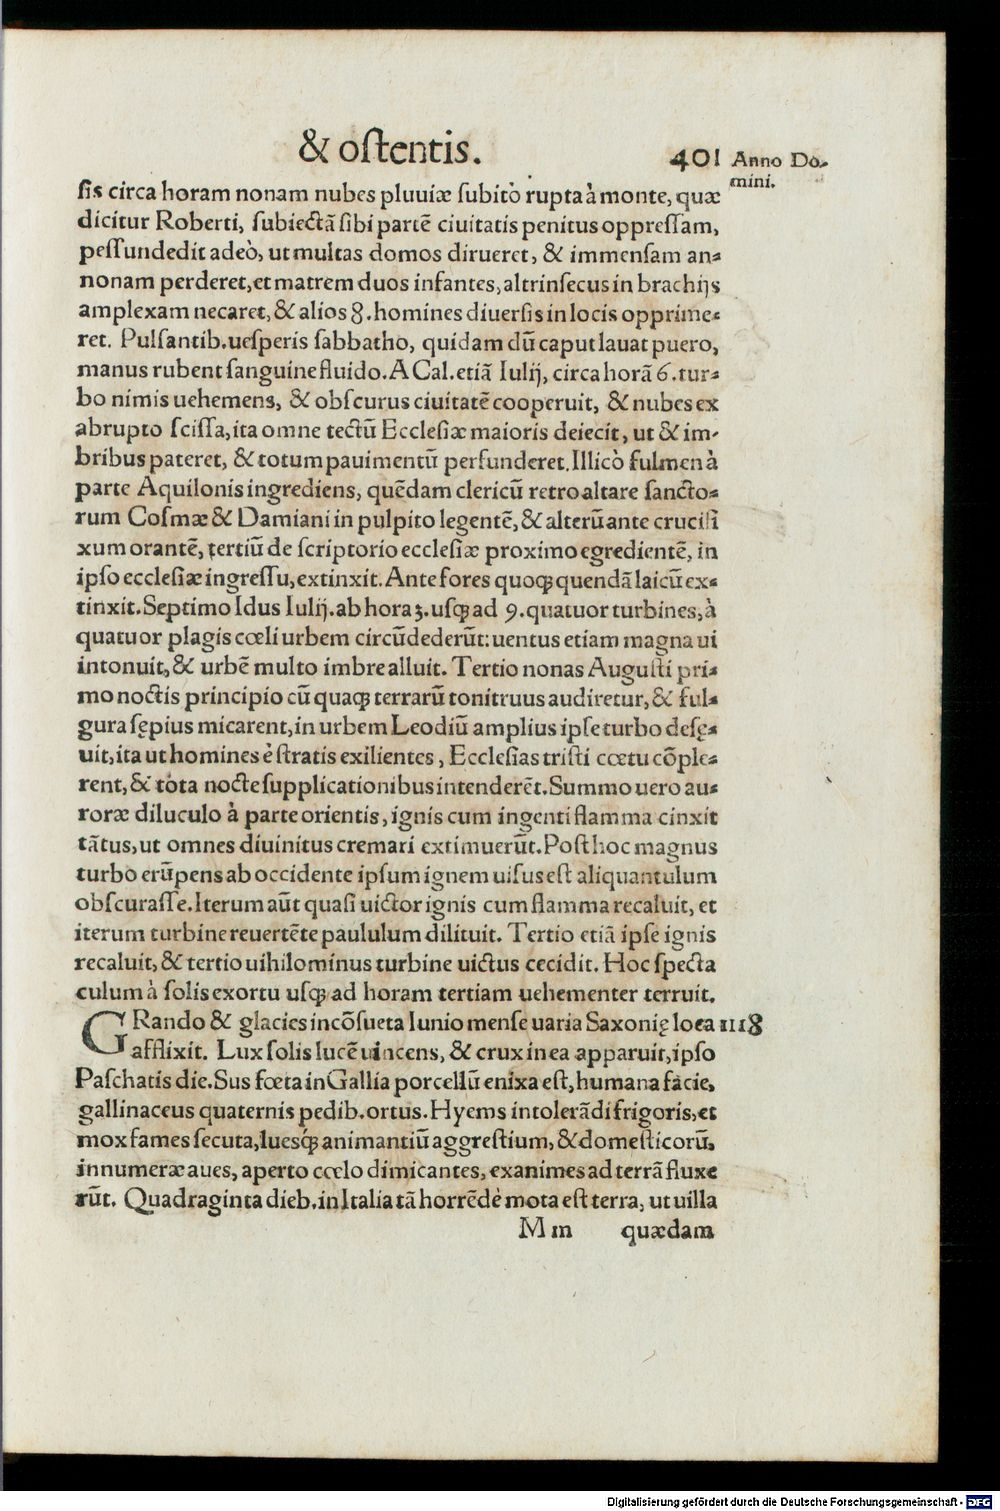 & oſtentis. 401 Anno Do-
mini.
ſis circa horam nonam nubes pluuiæ ſubitò rupta à monte, quæ
dicitur Roberti, ſubiectã ſibi partẽ ciuitatis penitus oppreſſam,
peſſundedit adeò, ut multas domos dirueret, & immenſam an-
nonam perderet, et matrem duos infantes, altrinſecus in brachijs
amplexam necaret, & alios 8. homines diuerſis in locis opprime-
ret. Pulſantib. ueſperis ſabbatho, quidam dũ caput lauat puero,
manus rubent ſanguine fluido. A Cal. etiã Iulij, circa horã 6. tur-
bo nimis uehemens, & obſcurus ciuitatẽ cooperuit, & nubes ex
abrupto ſciſſa, ita omne tectũ Eccleſiæ maioris deiecit, ut & im-
bribus pateret, & totum pauimentũ perfunderet. Illicò fulmen à
parte Aquilonis ingrediens, quẽdam clericũ retro altare ſancto-
rum Coſmæ & Damiani in pulpito legentẽ, & alterũ ante crucifi
xum orantẽ, tertiũ de ſcriptorio eccleſiæ proximo egredientẽ, in
ipſo eccleſiæ ingreſſu, extinxit. Ante fores quoq; quendã laicũ ex-
tinxit. Septimo Idus Iulij. ab hora 3. uſq; ad 9. quatuor turbines, à
quatuor plagis cœli urbem circũdederũt: uentus etiam magna ui
intonuit, & urbẽ multo imbre alluit. Tertio nonas Auguſti pri-
mo noctis principio cũ quaq; terrarũ tonitruus audiretur, & ful-
gura ſępius micarent, in urbem Leodiũ amplius ipſe turbo deſę-
uit, ita ut homines è ſtratis exilientes, Eccleſias triſti cœtu cõple-
rent, & tota nocte ſupplicationibus intenderẽt. Summo uero au-
roræ diluculo à parte orientis, ignis cum ingenti flamma cinxit
tãtus, ut omnes diuinitus cremari extimuerũt. Poſt hoc magnus
turbo erũpens ab occidente ipſum ignem uiſus eſt aliquantulum
obſcuraſſe. Iterum aũt quaſi uictor ignis cum flamma recaluit, et
iterum turbine reuertẽte paululum dilituit. Tertio etiã ipſe ignis
recaluit, & tertio uihilominus turbine uictus cecidit. Hoc ſpecta
culum à ſolis exortu uſq; ad horam tertiam uehementer terruit.
GRando & glacies incõſueta Iunio menſe uaria Saxonię loca 1118
afflixit. Lux ſolis lucẽ uincens, & crux in ea apparuit, ipſo
Paſchatis die. Sus fœta in Gallia porcellũ enixa eſt, humana facie,
gallinaceus quaternis pedib. ortus. Hyems intolerãdi frigoris, et
mox fames ſecuta, luesq́; animantiũ aggreſtium, & domeſticorũ,
innumeræ aues, aperto cœlo dimicantes, exanimes ad terrã fluxe
rũt. Quadraginta dieb. in Italia tã horrẽdè mota eſt terra, ut uilla
M m quædam
Digitalisierung gefördert durch die Deutsche Forschungsgemeinschaft - DFG